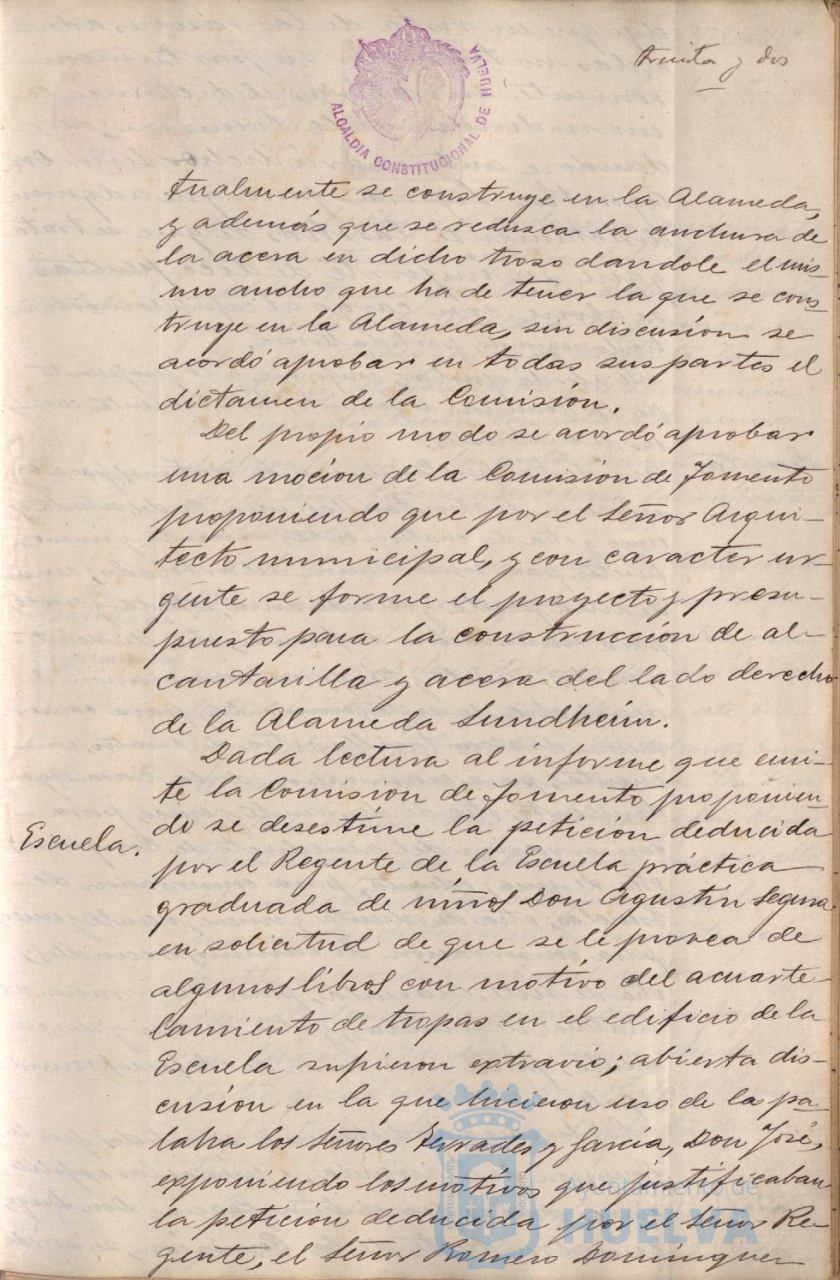 treinta y dos
ALCALDIA CONSTITUCIONAL DE HUELVA
tualmente se construye en la Alameda,
y además que se redusca la anchura de
la acera en dicho troso dandole el mis-
mo ancho que ha de tener la que se cons-
truye en la Alameda, sin discusión se
acordó aprobar en todas sus partes el
dictamen de la Comisión.
Del propio modo se acordó aprobar
una moción de la Comisión de Fomento
proponiendo que por el Señor Arqui-
tecto municipal, y con caracter ur-
gente se forme el proyecto y presu-
puesto para la construcción de al-
cantarilla y acera del lado derecho
de la Alameda Sundheim.
Dada lectura al informe que emi-
te la Comision de Fomento proponien-
do se desestime la petición deducida
Escuela.
por el Regente de la Escuela práctica
graduada de niños Don Agustín Segura
en solicitud de que se le provea de
algunos libros con motivo del acuarte-
lamiento de tropas en el edificio de la
Escuela sufrieron extravio; abierta dis-
cusión en la que hicieron uso de la pa-
labra los Señores Terrades y García, Don José,
exponiendo los motivos que justificaban
la petición deducida por el Señor Re-
gente, el Señor Romero Dominguez
Ayuntamiento de
HUELVA